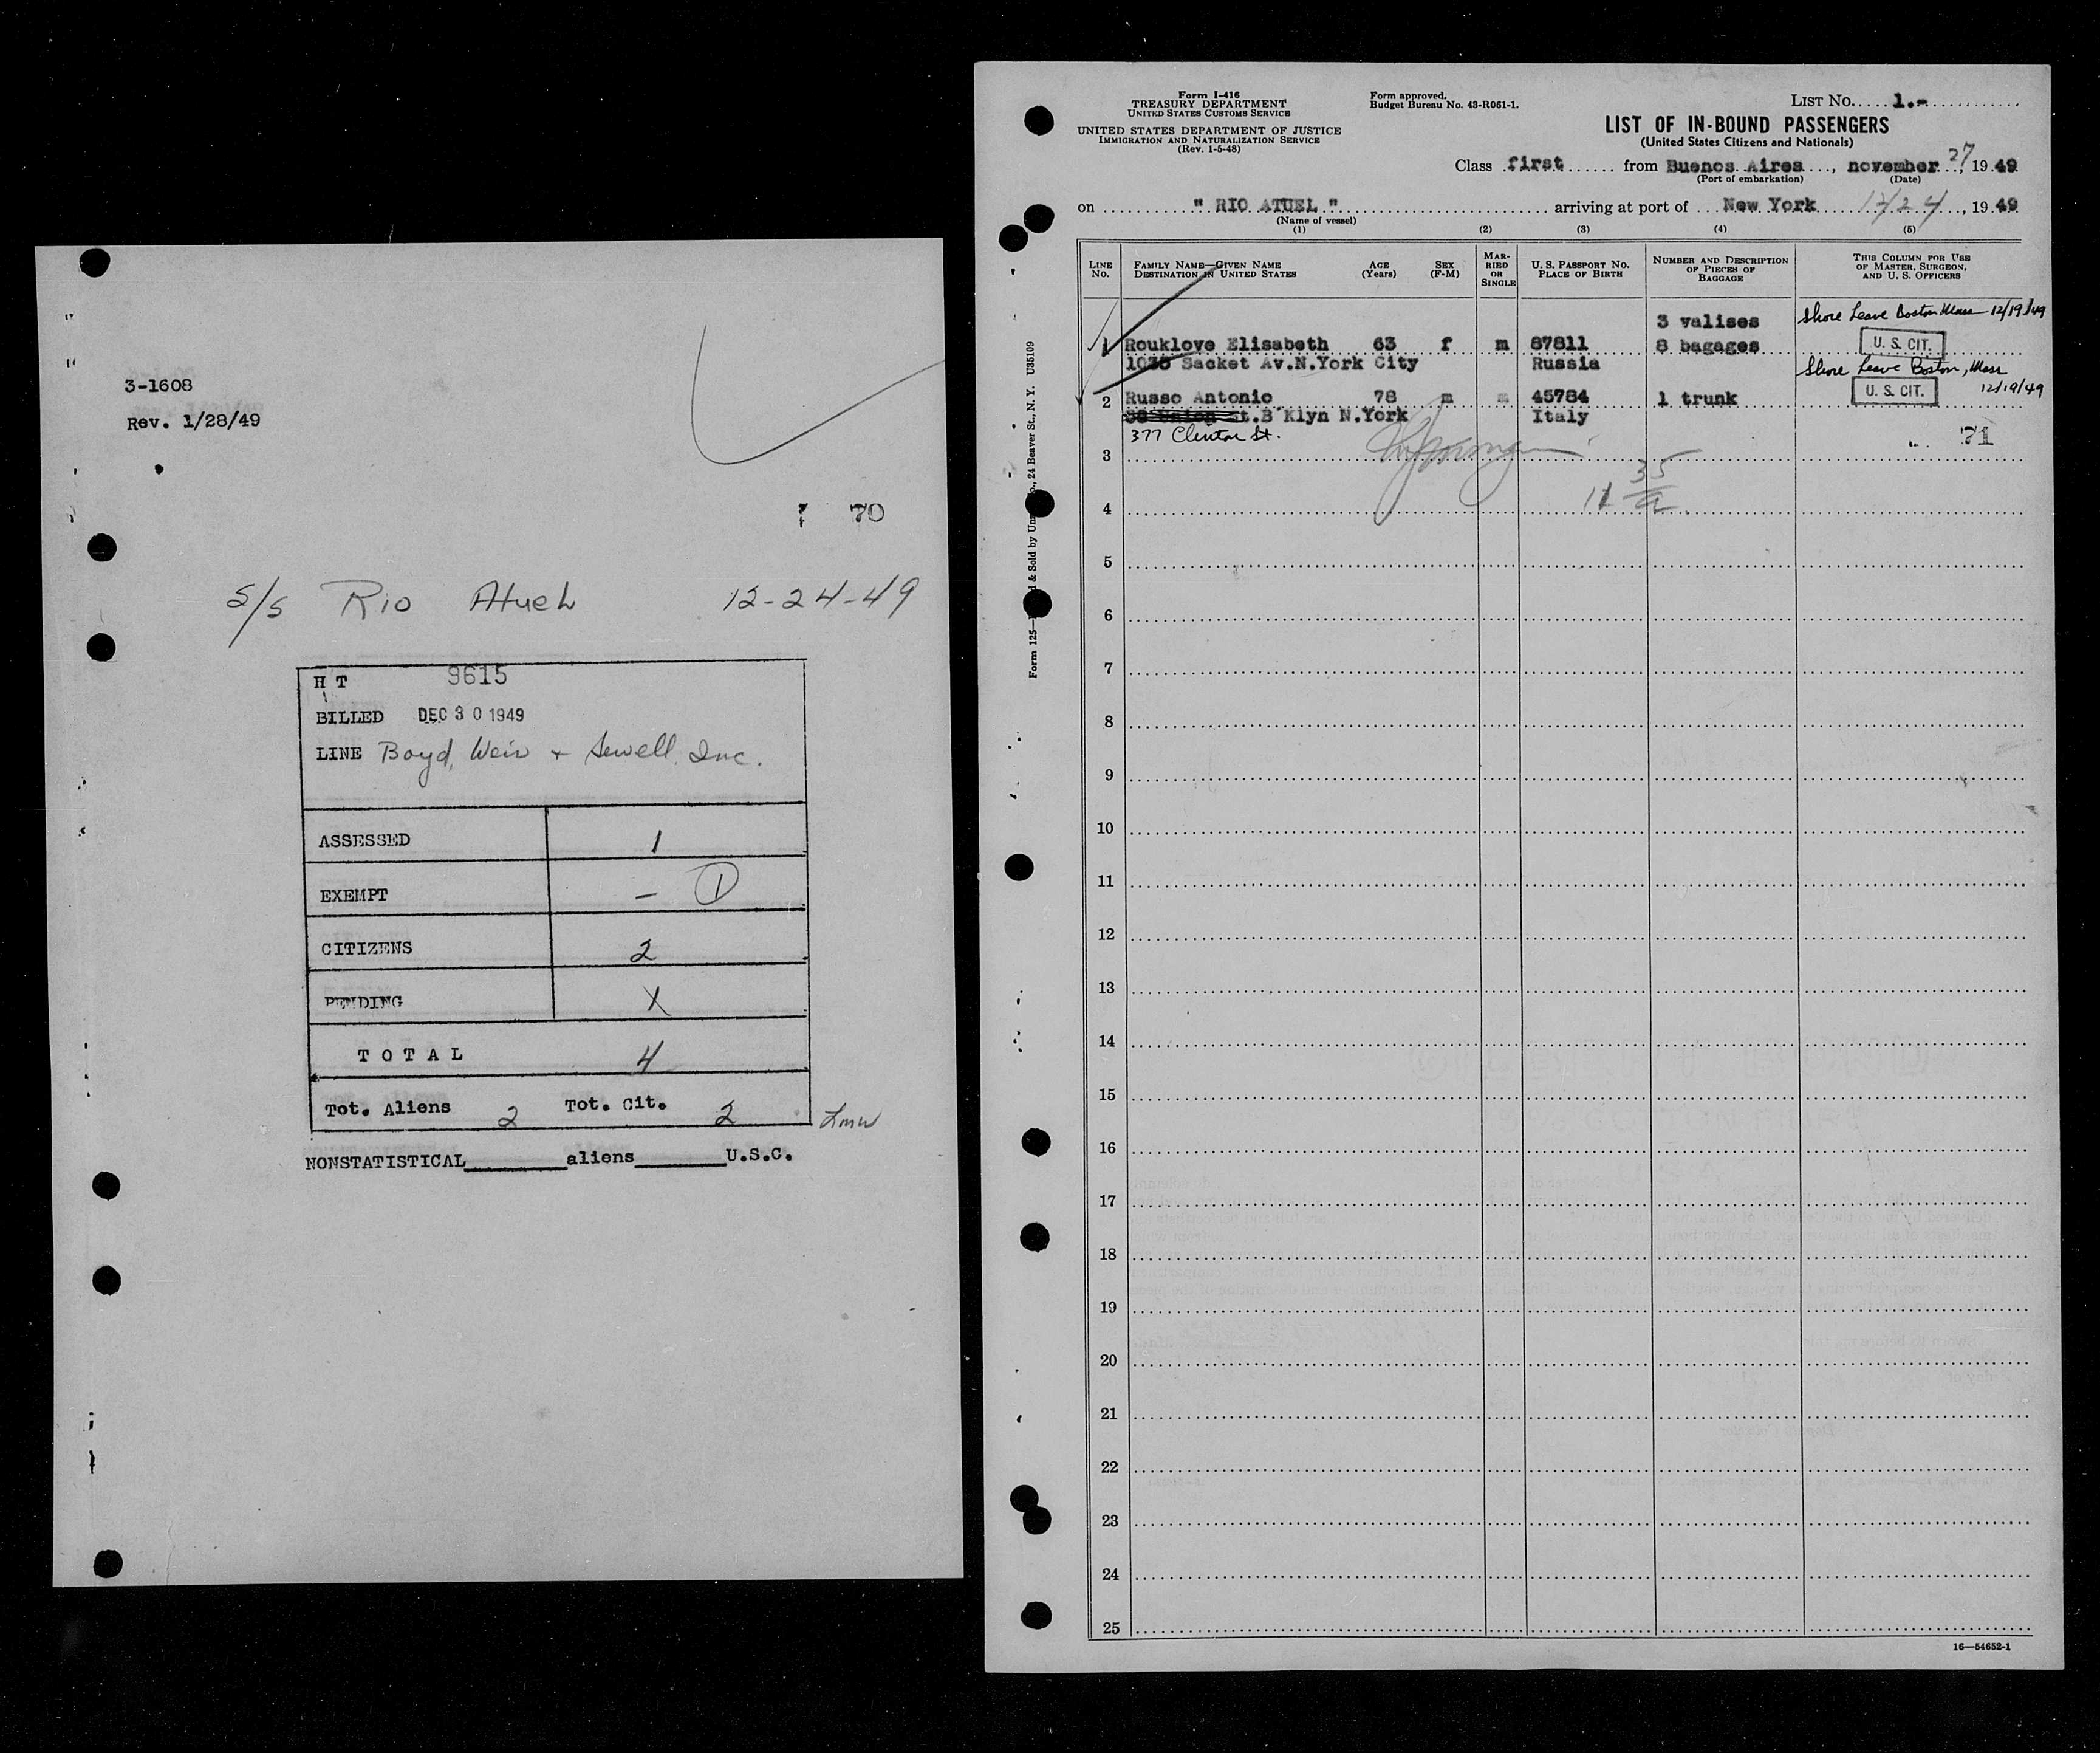 3-1608
Rev. 1/28/49
70
S/S Rio Atuel 12-24-49
H T 9615
BILLED DEC 30 1949
LINE Boyd, Weir + Sewell, Inc.
ASSESSED 1
EXEMPT — 1
CITIZENS 2
PENDING X
TOTAL 4
Tot. Aliens 2 Tot. Cit. 2
NONSTATISTICAL aliens U.S.C.
Form I-416
TREASURY DEPARTMENT
UNITED STATES CUSTOMS SERVICE
UNITED STATES DEPARTMENT OF JUSTICE
IMMIGRATION AND NATURALIZATION SERVICE
(Rev. 1-5-48)
Form approved.
Budget Bureau No. 43-R061-1.
LIST No. 1.-
LIST OF IN-BOUND PASSENGERS
(United States Citizens and Nationals)
Class first from Buenos Aires, november 27, 1949
(Port of embarkation) (Date)
on " RIO ATUEL " arriving at port of New York 12/24, 1949
(Name of vessel)
(1) (2) (3) (4) (5)
LINE No. FAMILY NAME—GIVEN NAME DESTINATION IN UNITED STATES AGE (Years) SEX (F-M) MARRIED OR SINGLE U. S. PASSPORT NO. PLACE OF BIRTH NUMBER AND DESCRIPTION OF PIECES OF BAGGAGE THIS COLUMN FOR USE OF MASTER, SURGEON, AND U. S. OFFICERS
3 valises Shore Leave Boston Mass 12/19/49
1 Rouklove Elisabeth 63 f m 87811 8 bagages U. S. CIT.
Sacket Av.N.York City Russia Shore Leave Boston, Mass
12/19/49
2 Russo Antonio 78 m m 45784 1 trunk U. S. CIT.
St.B Klyn N.York Italy
377 Clinton St. 71
3
11 35/a
4
5
6
7
8
9
10
11
12
13
14
15
16
17
18
19
20
21
22
23
24
25
16—54652-1
24 Beaver St., N. Y. U35109